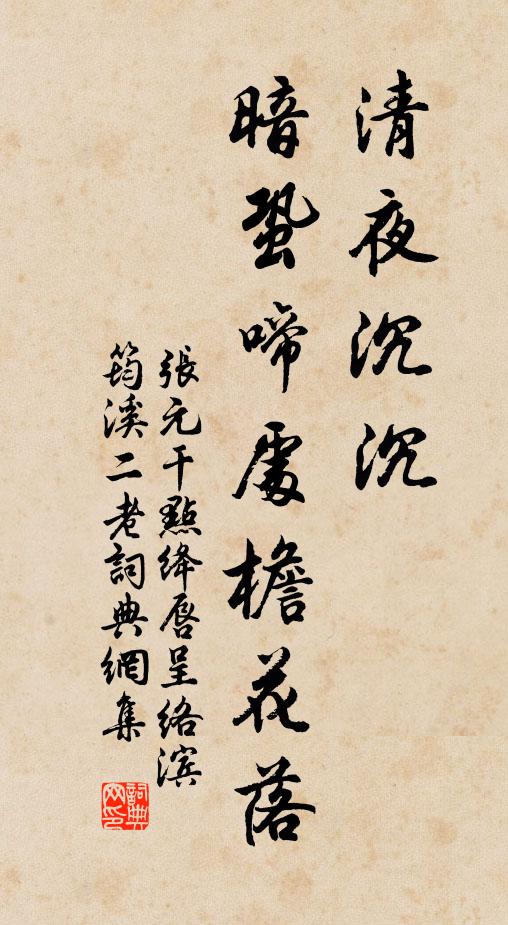 清夜沉沉
暗蛩啼處檐花落
張元干點絳唇呈絡滨
筠溪二老詞典網集
詞典网印